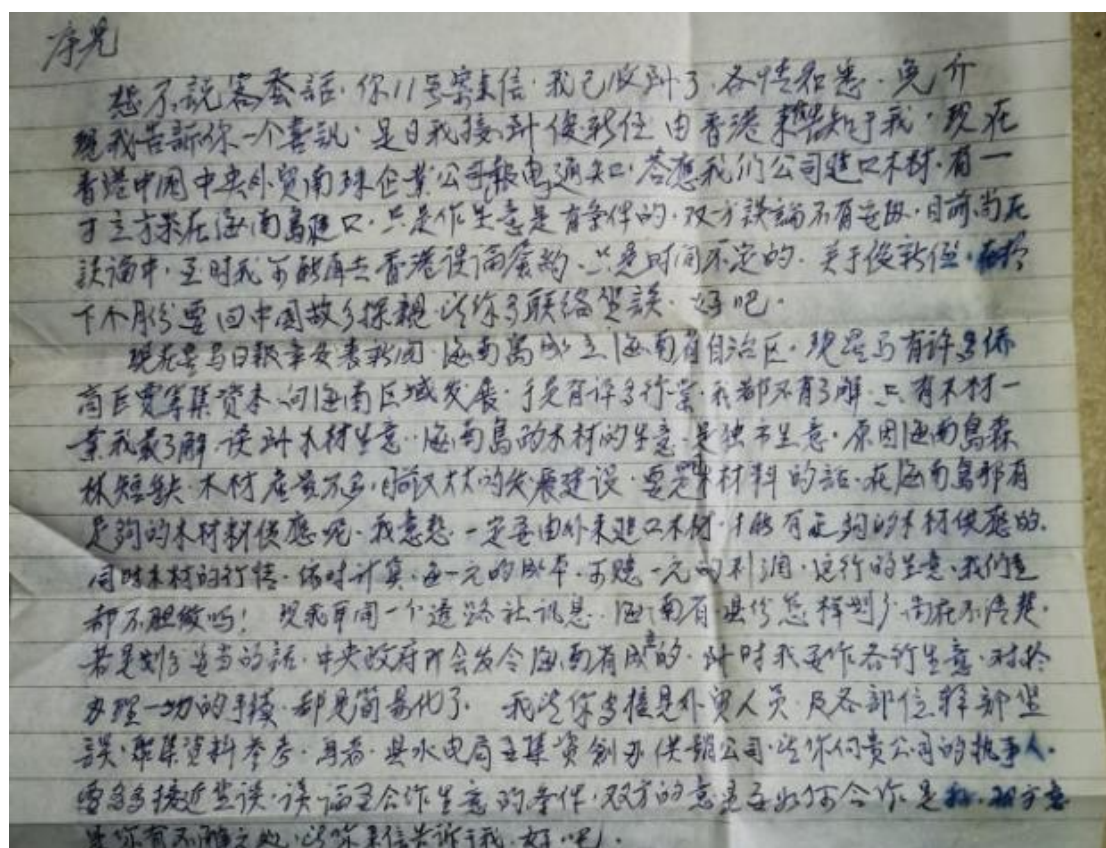 序兄
想不説客套話.你11号案来信.我已收到了.各情知悉.免介
現我告訴你一个喜訊.是日我接到俊新侄由香港来告知于我.現在
香港中国中央外贸南珠企業公司報电通知.答應我们公司進口木材.有一
才立方米在海南島進口.只是作生意是有条件的.双方談論不有妥毋.目前尚在
談論中.至时我可能再去香港谈論签約.只是时间不定的.关于俊新侄.
下个月份要回中国故乡探親.请你多联络坐談.好吧.
現在星马日報章发表新闻.海南島成立海南省自治区.現星马有许多侨
商巨要筹集资本.向海南区域发展.于是有许多行業.我都不有了解.只有木材一
業我最了解.谈到木材生意.海南島的木材的生意.是独市生意.原因海南島森
林短缺.木材産量不多.目前大大的发展建设.要用材料的話.在海南島那有
足夠的木材料供應呢.我意想一定要由外来進口木材.才能有足夠的木材供應的.
同时木材的行情.估时计算.每一元的成本.可賺一元的利润.这行的生意.我们
都不胆做吗！現我再闻一个道路社讯息.海南省县份怎样划分尚在不清楚.
若是划分妥当的話.中央政府才会发令海南省成立的.到时我要作各行生意.对於
办理一切的手續.都見简易化了.我请你多接見外贸人员及各部位幹部坐
談.聚集资料参考.再者.县水电局集资创办供销公司.请你向贵公司的执事人.
要多多接近坐谈.谈論至合作生意的条件.双方的意見要如何合作
你有不难之处.请你来信告诉于我.好吧.